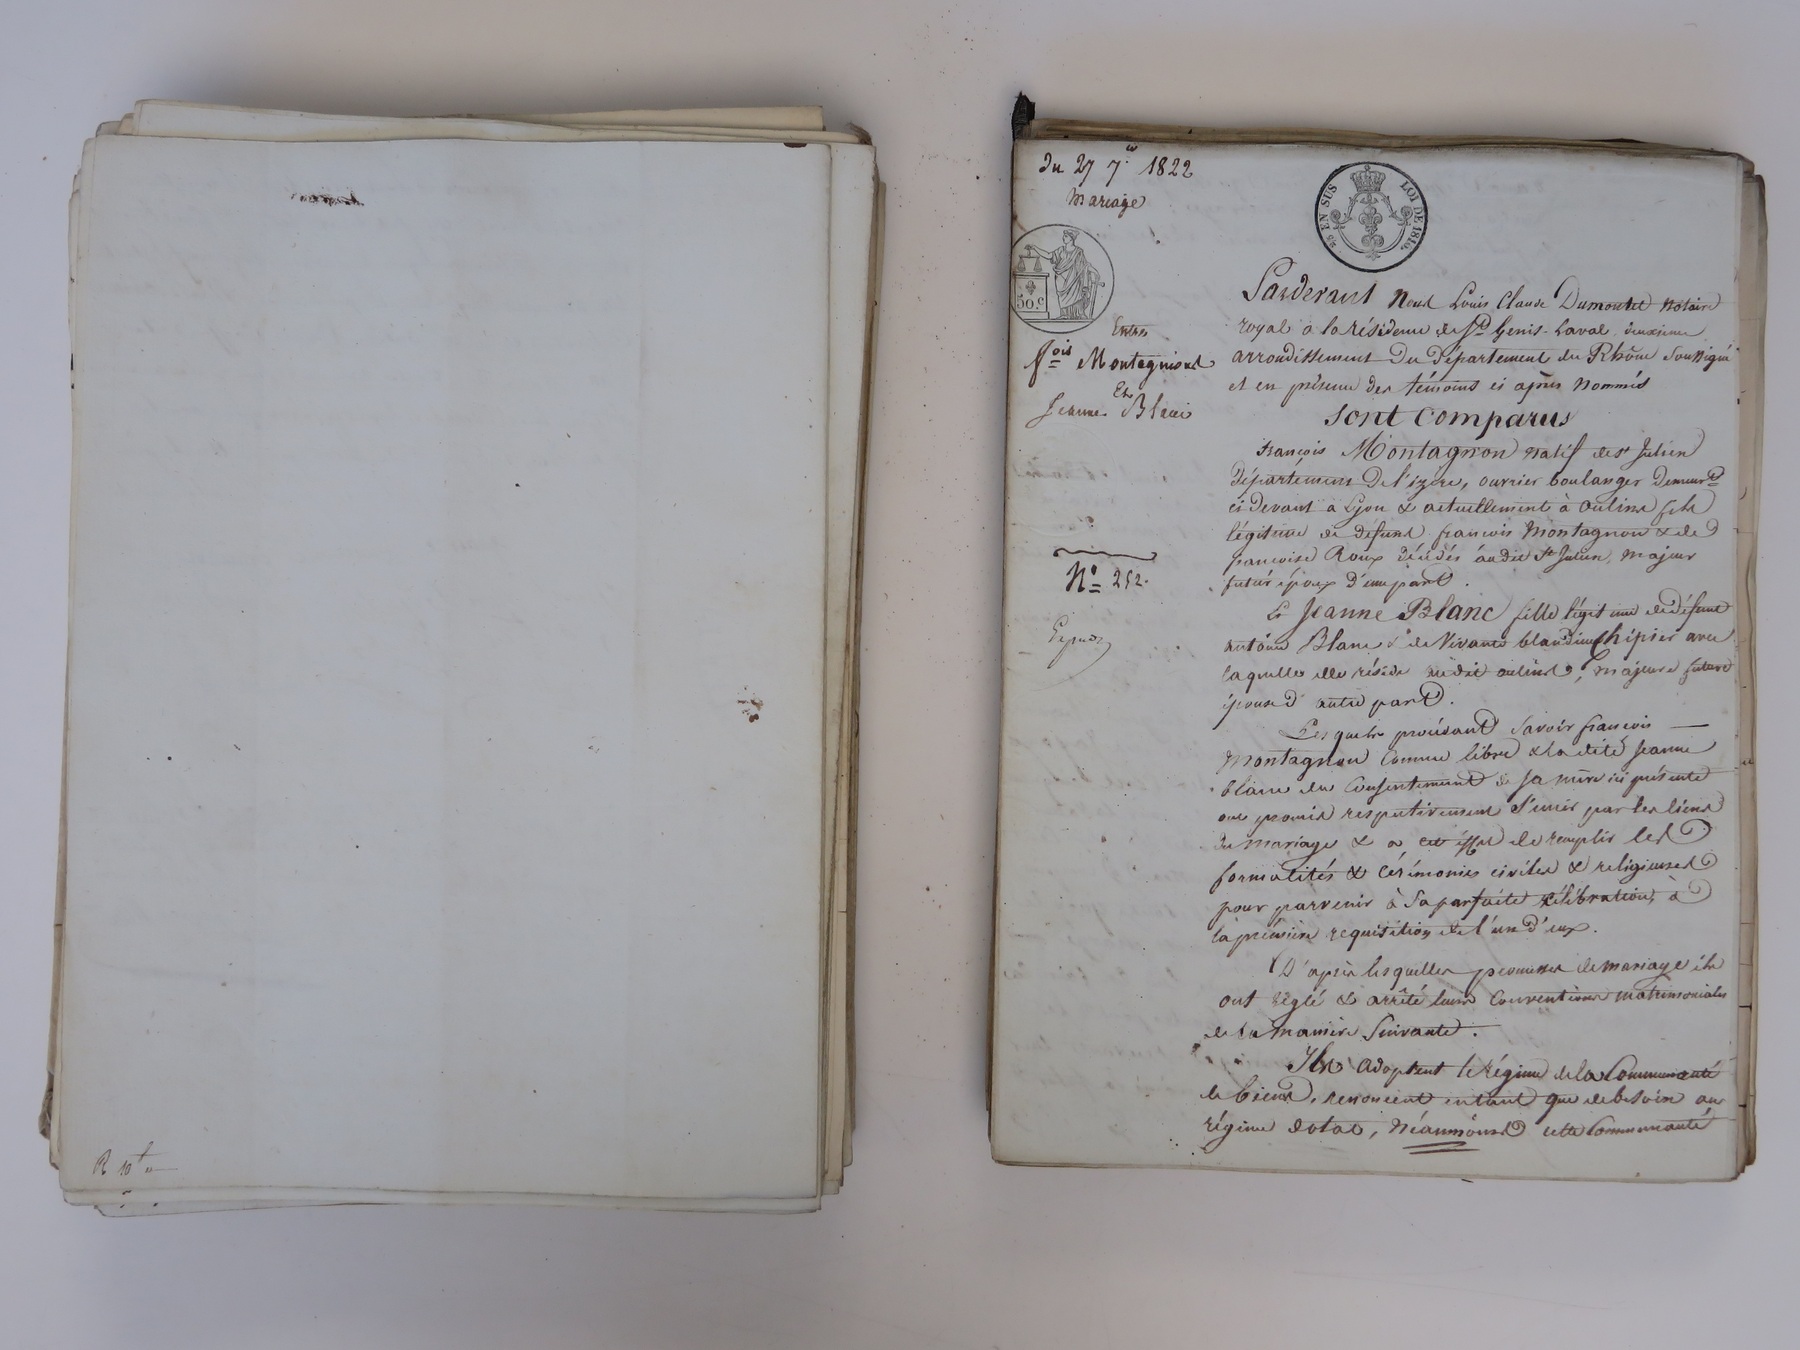 R 10
du 27 7.bre 1822
Mariage
25 EN SUS LOI DE 1816.
50 c
Entre
f.ois Montagnond
Et
Jeanne Blanc
N.o 252.
Pardevant Nous Louis Claude Dumontet Notaire
royal a la résidence de S.t Genis-Laval deuxieme
arrondissement Du Département du Rhône soussigné
et en présence des témoins ci après nommés
sont comparus
francois Montagnon natif de st Julien
département De l'izère, ouvrier boulanger demeur.t
ci devant a Lyon & actuellement à oulins fils
légitime de défunt francois Montagnon & de
francoise Roux décédés audit St Julien, majeur
futur époux d'une part.
Et Jeanne Blanc fille légitime de défunt
antoine Blanc & de Vivante blandine Chipier avec
laquelle elle réside audit oulins, majeure future
épouse d'autre part.
Lesquels procédant savoir francois
Montagnon comme libre & la dite Jeanne
blanc du Consentement de sa mère ici présente
ont promis respectivement s'unir par les liens
du mariage & a cet effet de remplir les
formalités & cérémonies civiles & religieuses
pour parvenir à sa parfaite célébration, à
la première requisition de l'un d'eux.
D'après lesquelles promesses de mariage ils
ont réglé & arrêté leurs Conventions matrimoniales
de la manière suivante.
Ils adoptent le régime de la Communauté
de biens, renoncent en tant que de besoin au
régime dotal, néanmoins cette Communauté